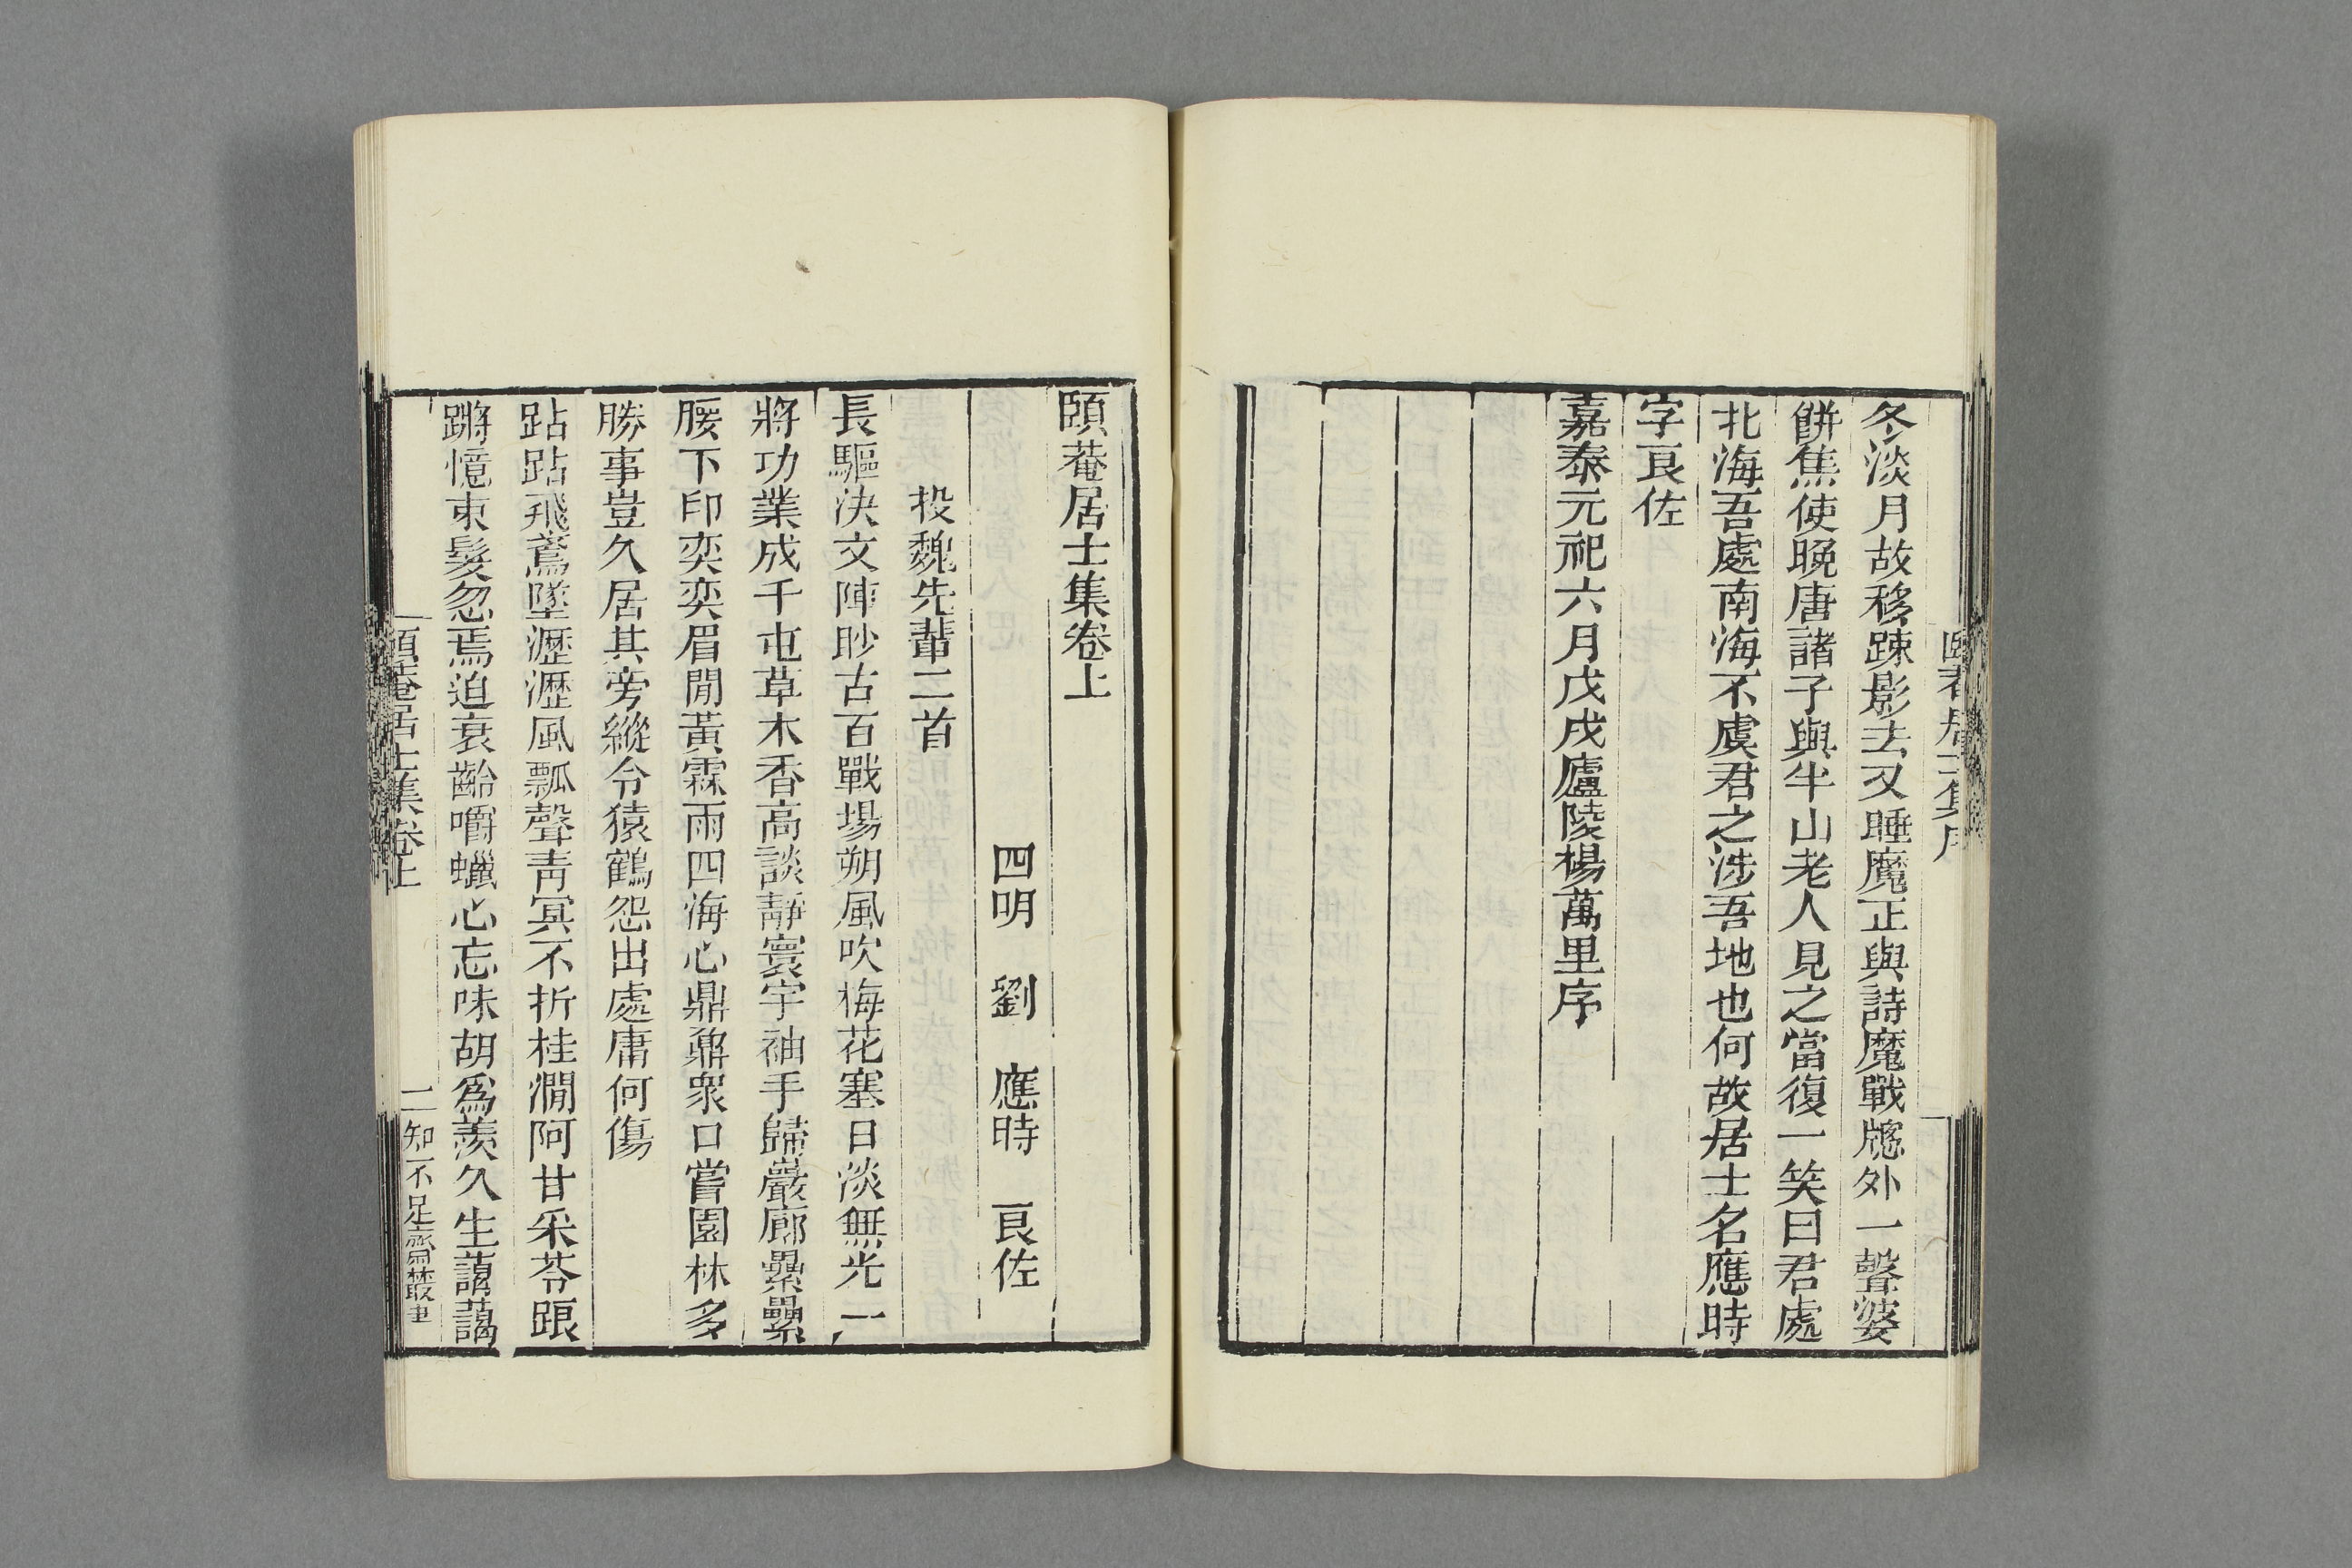 頤菴居士集序
冬淡月故移踈影去又睡魔正與詩魔戰牕外一聲婆
餅焦使晚唐諸子與半山老人見之當復一笑曰君處
北海吾處南海不虞君之涉吾地也何故居士名應時
字良佐
嘉泰元祀六月戊戌廬陵楊萬里序
頤菴居士集卷上
四明 劉 應時 良佐
投魏先輩二首
長驅決文陣眇古百戰場朔風吹梅花塞日淡無光一
將功業成千屯草木香高談靜寰宇袖手歸巖廊纍纍
腰下印奕奕眉閒黃霖雨四海心鼎鼐衆口嘗園林多
勝事豈久居其旁縱令猿鶴怨出處庸何傷
跕跕飛鳶墜瀝瀝風瓢聲靑冥不折桂澗阿甘采苓踉
蹡憶束髮忽焉迫衰齡嚼蠟心忘味胡爲羨久生藹藹
頤菴居士集卷上
一
知不足齋叢書